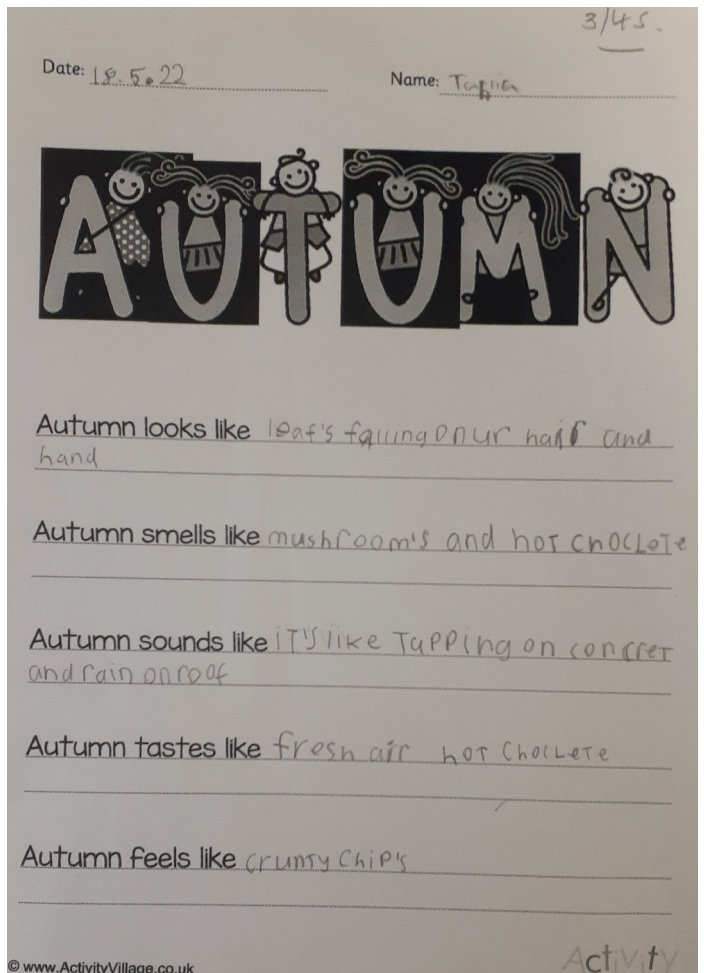 3/4S.
Date: 18.5.22
Name:
AUTUMN
Autumn looks like leaf's falling on ur hair and
hand
Autumn smells like mushroom's and hot choclete
Autumn sounds like it's like Tapping on concret
and rain on roof
Autumn tastes like fresh air hot Choclete
Autumn feels like crunty Chip's
© www.ActivityVillage.co.uk
Activity